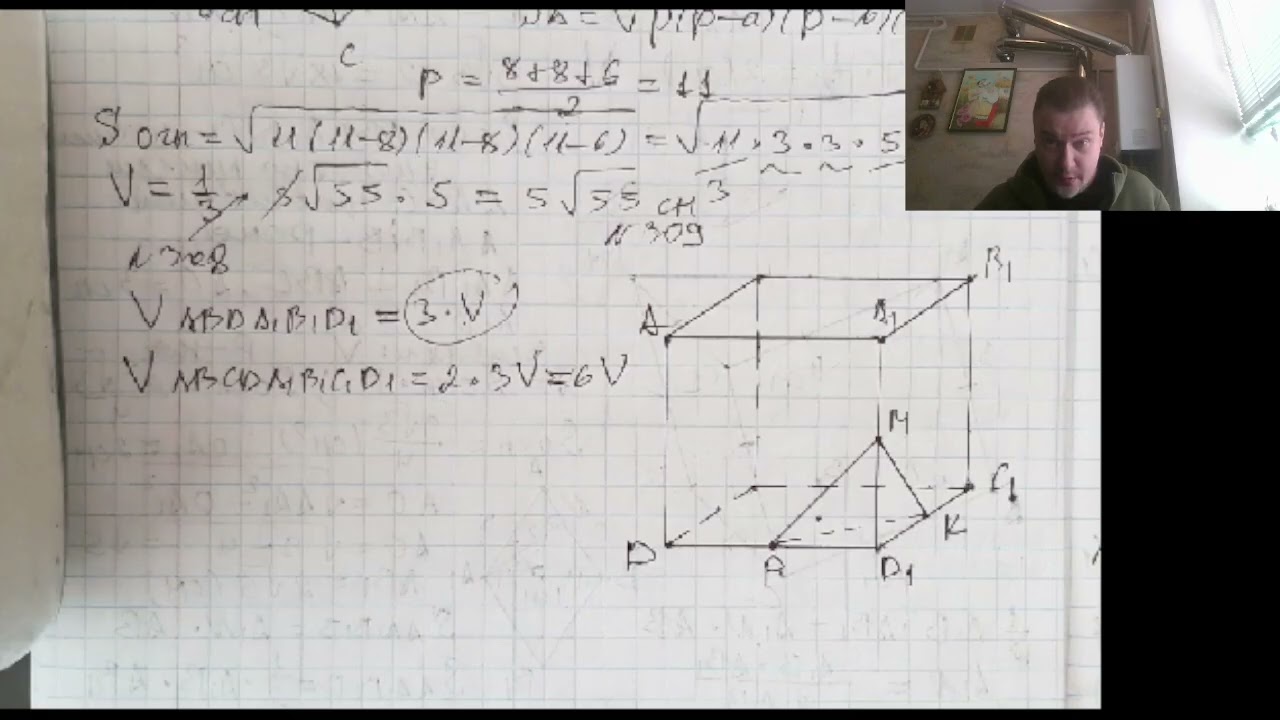 c
P = 8+8+6/2 = 11
Sосн = √11(11-8)(11-8)(11-6) = √11·3·3·5
V = 1/3 · 3√55 · 5 = 5√55 см³
N308
N309
V ABDA₁B₁D₁ = 3·V
V ABCDA₁B₁C₁D₁ = 2·3V = 6V
B₁
A
A₁
M
C₁
K
D
A
D₁